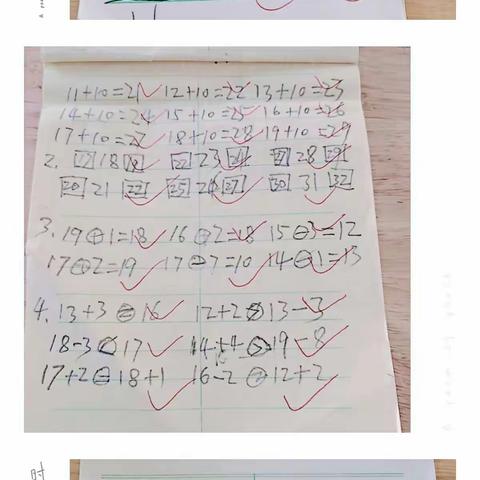 11+10=21 12+10=22 13+10=23
14+10=24 15+10=25 16+10=26
17+10=27 18+10=28 19+10=29
2. 17 18 19 22 23 24 27 28 29
20 21 22 25 26 27 30 31 32
3. 19⊖1=18 16⊕2=18 15⊖3=12
17⊕2=19 17⊖7=10 14⊖1=13
4. 13+3⊜16 12+2 13-3
18-3 17 14+4 19-8
17+2 18+1 16-2 12+2
时